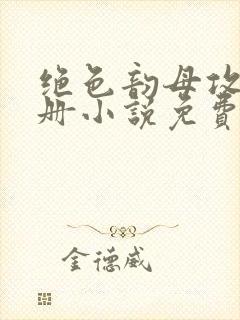 绝色韵母攻
册小说免费
金德威